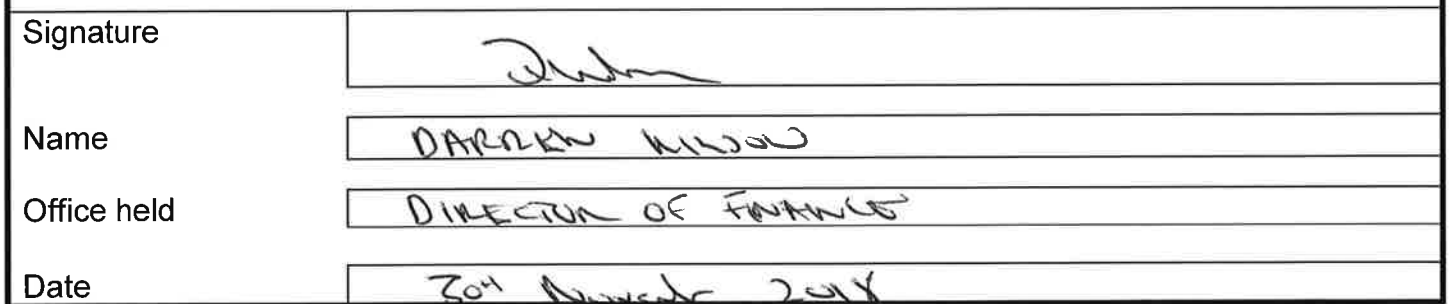 Signature
Name DARREN WILSON
Office held DIRECTOR OF FINANCE
Date 30th November 2018